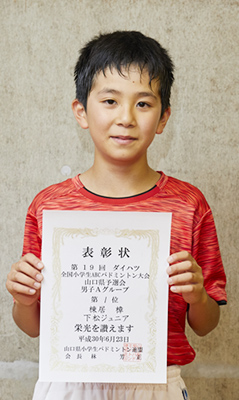 表彰状
第19回 ダイハツ
全国小学生ABCバドミントン大会
山口県予選会
男子Aグループ
第1位
棟居 樟
下松ジュニア
栄光を讃えます
平成30年6月23日
山口県小学生バドミントン連盟
会長 林